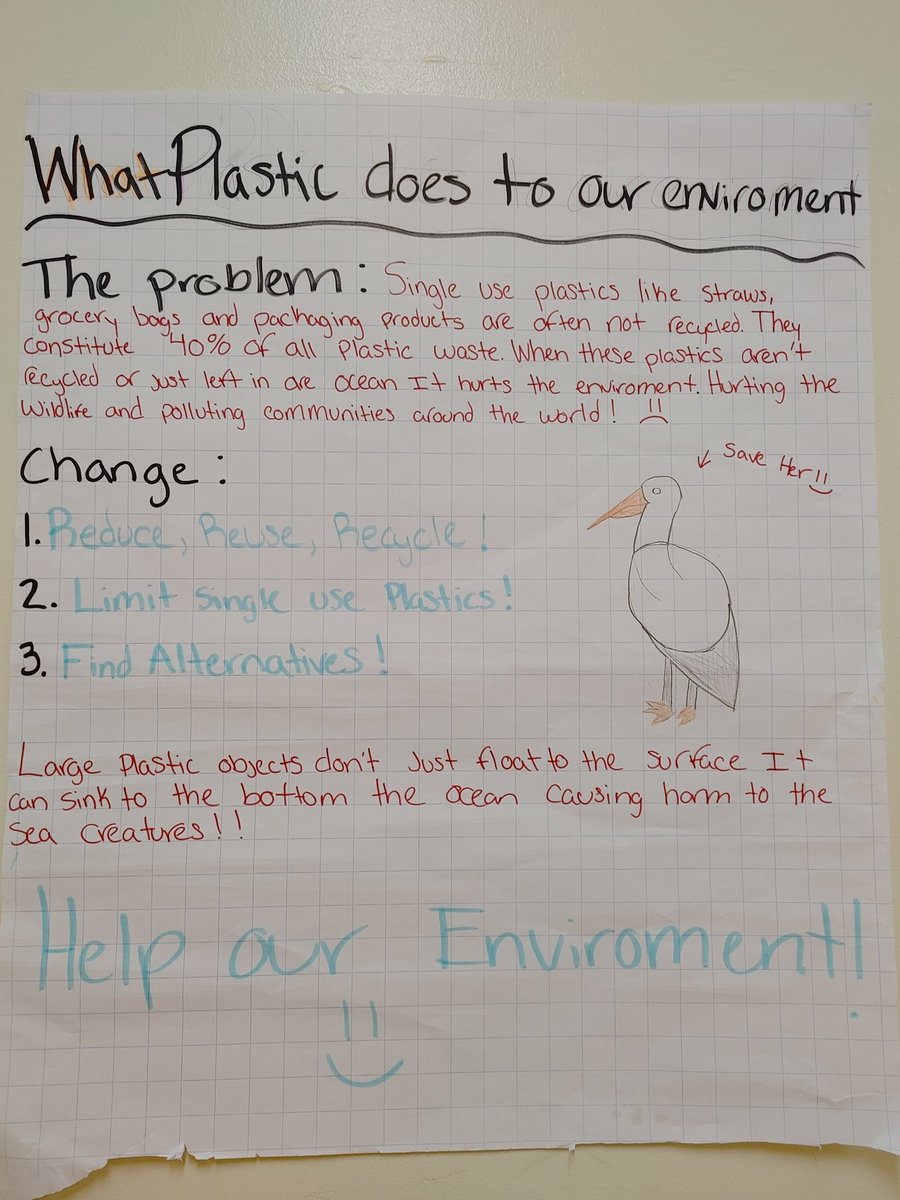 What Plastic does to our enviroment
The problem: Single use plastics like straws,
grocery bags and packaging products are often not recycled. They
constitute 40% of all plastic waste. When these plastics aren't
recycled or just left in are ocean It hurts the enviroment. Hurting the
Wildlife and polluting communities around the world!
Change:
Save Her
1. Reduce, Reuse, Recycle!
2. Limit single use Plastics!
3. Find Alternatives!
Large Plastic objects don't Just float to the surface It
can sink to the bottom the ocean causing harm to the
Sea creatures!!
Help our Enviroment!